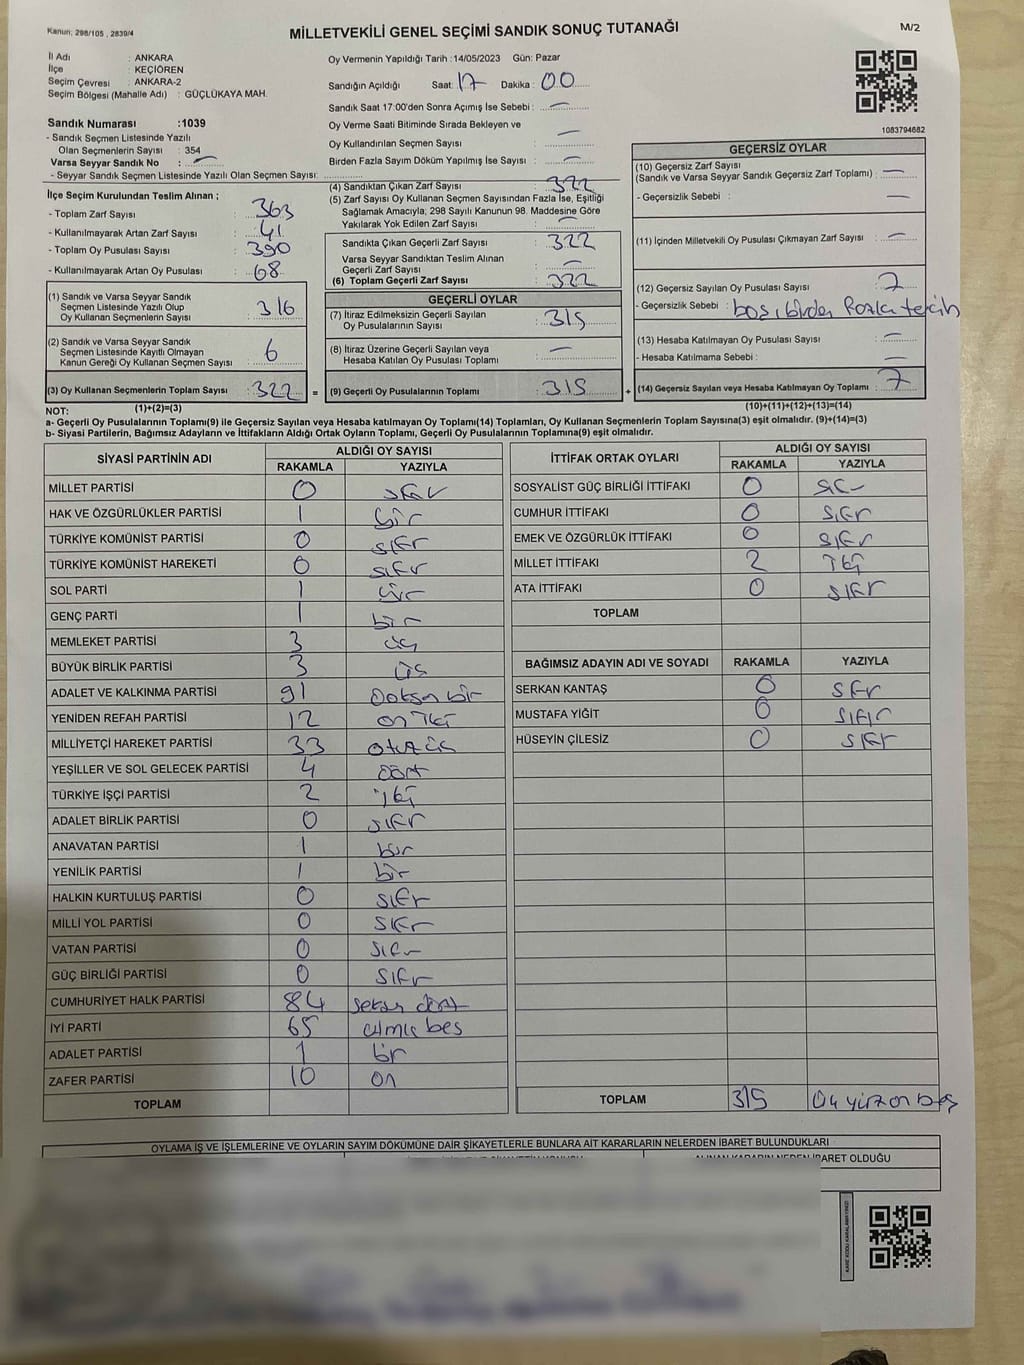 Kanun; 298/105 , 2839/4
MİLLETVEKİLİ GENEL SEÇİMİ SANDIK SONUÇ TUTANAĞI
M/2
İl Adı : ANKARA
İlçe : KEÇİÖREN
Seçim Çevresi : ANKARA-2
Seçim Bölgesi (Mahalle Adı) : GÜÇLÜKAYA MAH.
Oy Vermenin Yapıldığı Tarih :14/05/2023 Gün: Pazar
Sandığın Açıldığı Saat: 17 Dakika : 00
Sandık Saat 17:00'den Sonra Açımış İse Sebebi : —
Oy Verme Saati Bitiminde Sırada Bekleyen ve
Oy Kullandırılan Seçmen Sayısı : —
Birden Fazla Sayım Döküm Yapılmış İse Sayısı : —
1083794682
Sandık Numarası :1039
- Sandık Seçmen Listesinde Yazılı
Olan Seçmenlerin Sayısı : 354
Varsa Seyyar Sandık No : —
- Seyyar Sandık Seçmen Listesinde Yazılı Olan Seçmen Sayısı:
İlçe Seçim Kurulundan Teslim Alınan ;
- Toplam Zarf Sayısı : 363
- Kullanılmayarak Artan Zarf Sayısı : 41
- Toplam Oy Pusulası Sayısı : 390
- Kullanılmayarak Artan Oy Pusulası : 68
(1) Sandık ve Varsa Seyyar Sandık
Seçmen Listesinde Yazılı Olup
Oy Kullanan Seçmenlerin Sayısı : 316
(2) Sandık ve Varsa Seyyar Sandık
Seçmen Listesinde Kayıtlı Olmayan
Kanun Gereği Oy Kullanan Seçmen Sayısı : 6
(3) Oy Kullanan Seçmenlerin Toplam Sayısı : 322 =
(4) Sandıktan Çıkan Zarf Sayısı : 322
(5) Zarf Sayısı Oy Kullanan Seçmen Sayısından Fazla İse, Eşitliği
Sağlamak Amacıyla, 298 Sayılı Kanunun 98. Maddesine Göre
Yakılarak Yok Edilen Zarf Sayısı : —
Sandıkta Çıkan Geçerli Zarf Sayısı : 322
Varsa Seyyar Sandıktan Teslim Alınan
Geçerli Zarf Sayısı : —
(6) Toplam Geçerli Zarf Sayısı : 322
GEÇERLİ OYLAR
(7) İtiraz Edilmeksizin Geçerli Sayılan
Oy Pusulalarının Sayısı : 315
(8) İtiraz Üzerine Geçerli Sayılan veya
Hesaba Katılan Oy Pusulası Toplamı : —
(9) Geçerli Oy Pusulalarının Toplamı : 315 +
GEÇERSİZ OYLAR
(10) Geçersiz Zarf Sayısı
(Sandık ve Varsa Seyyar Sandık Geçersiz Zarf Toplamı) : —
- Geçersizlik Sebebi : —
(11) İçinden Milletvekili Oy Pusulası Çıkmayan Zarf Sayısı : —
(12) Geçersiz Sayılan Oy Pusulası Sayısı : 7
- Geçersizlik Sebebi : boş, birden fazla tercih
(13) Hesaba Katılmayan Oy Pusulası Sayısı : —
- Hesaba Katılmama Sebebi : —
(14) Geçersiz Sayılan veya Hesaba Katılmayan Oy Toplamı : 7
NOT: (1)+(2)=(3) (10)+(11)+(12)+(13)=(14)
a- Geçerli Oy Pusulalarının Toplamı(9) ile Geçersiz Sayılan veya Hesaba katılmayan Oy Toplamı(14) Toplamları, Oy Kullanan Seçmenlerin Toplam Sayısına(3) eşit olmalıdır. (9)+(14)=(3)
b- Siyasi Partilerin, Bağımsız Adayların ve İttifakların Aldığı Oyların Toplamı, Geçerli Oy Pusulalarının Toplamına(9) eşit olmalıdır.
SİYASİ PARTİNİN ADI ALDIĞI OY SAYISI
RAKAMLA YAZIYLA
MİLLET PARTİSİ 0 sıfır
HAK VE ÖZGÜRLÜKLER PARTİSİ 1 bir
TÜRKİYE KOMÜNİST PARTİSİ 0 sıfır
TÜRKİYE KOMÜNİST HAREKETİ 0 sıfır
SOL PARTİ 1 bir
GENÇ PARTİ 1 bir
MEMLEKET PARTİSİ 3 üç
BÜYÜK BİRLİK PARTİSİ 3 üç
ADALET VE KALKINMA PARTİSİ 91 Doksan bir
YENİDEN REFAH PARTİSİ 12 on iki
MİLLİYETÇİ HAREKET PARTİSİ 33 otuz üç
YEŞİLLER VE SOL GELECEK PARTİSİ 4 dört
TÜRKİYE İŞÇİ PARTİSİ 2 iki
ADALET BİRLİK PARTİSİ 0 sıfır
ANAVATAN PARTİSİ 1 bir
YENİLİK PARTİSİ 1 bir
HALKIN KURTULUŞ PARTİSİ 0 sıfır
MİLLİ YOL PARTİSİ 0 sıfır
VATAN PARTİSİ 0 sıfır
GÜÇ BİRLİĞİ PARTİSİ 0 sıfır
CUMHURİYET HALK PARTİSİ 84 seksen dört
İYİ PARTİ 65 altmış beş
ADALET PARTİSİ 1 bir
ZAFER PARTİSİ 10 on
TOPLAM
İTTİFAK ORTAK OYLARI ALDIĞI OY SAYISI
RAKAMLA YAZIYLA
SOSYALİST GÜÇ BİRLİĞİ İTTİFAKI 0 sıfır
CUMHUR İTTİFAKI 0 sıfır
EMEK VE ÖZGÜRLÜK İTTİFAKI 0 sıfır
MİLLET İTTİFAKI 2 iki
ATA İTTİFAKI 0 sıfır
TOPLAM
BAĞIMSIZ ADAYIN ADI VE SOYADI RAKAMLA YAZIYLA
SERKAN KANTAŞ 0 sıfır
MUSTAFA YİĞİT 0 sıfır
HÜSEYİN ÇİLESİZ 0 sıfır
TOPLAM 315 Üç yüz on beş
OYLAMA İŞ VE İŞLEMLERİNE VE OYLARIN SAYIM DÖKÜMÜNE DAİR ŞİKAYETLERLE BUNLARA AİT KARARLARIN NELERDEN İBARET BULUNDUKLARI
ALINAN KARARIN NEDEN İBARET OLDUĞU